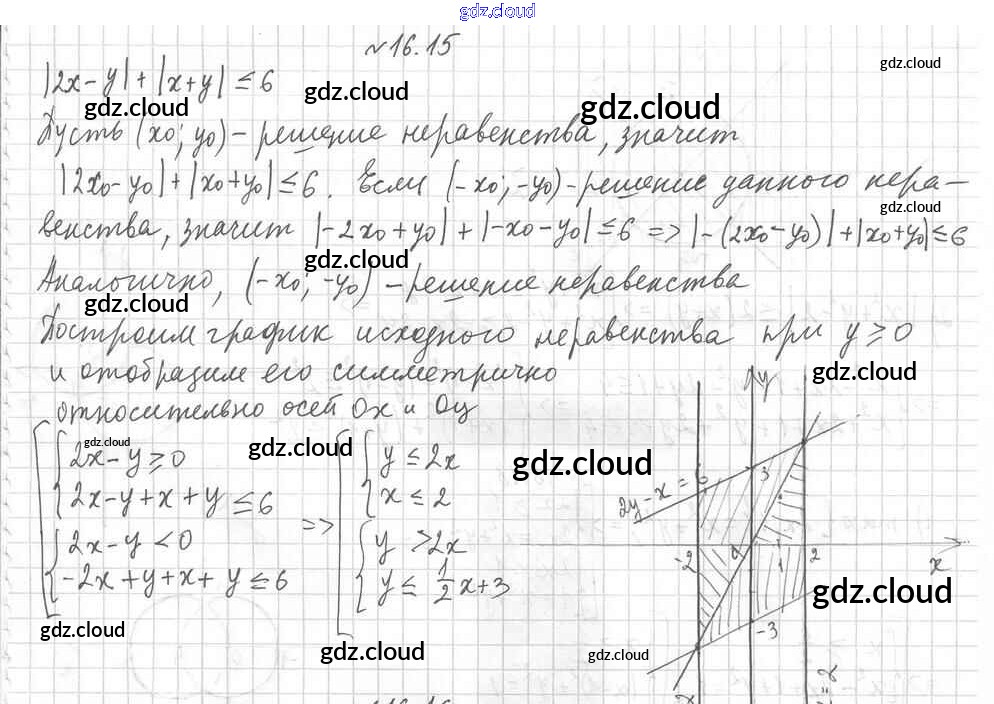 gdz.cloud
№16.15
gdz.cloud
|2x-y|+|x+y|≤6
gdz.cloud gdz.cloud gdz.cloud
Пусть (x0; y0)-решение неравенства, значит
|2x0-y0|+|x0+y0|≤6. Если (-x0; -y0)-решение данного нера-
gdz.cloud
венства, значит |-2x0+y0|+|-x0-y0|≤6 => |-(2x0-y0)|+|x0+y0|≤6
gdz.cloud
Аналогично, (-x0; -y0)-решение неравенства
gdz.cloud
Построим график исходного неравенства при y≥0
и отобразим его симметрично
gdz.cloud
относительно осей Ox и Oy
gdz.cloud gdz.cloud gdz.cloud
2x-y≥0
2x-y+x+y≤6
2x-y<0
-2x+y+x+y≤6
=>
y≤2x
x≤2
y>2x
y≤1/2x+3
gdz.cloud gdz.cloud gdz.cloud gdz.cloud
y
2y-x=6
3
-2
0
1
2
x
-3
16.16